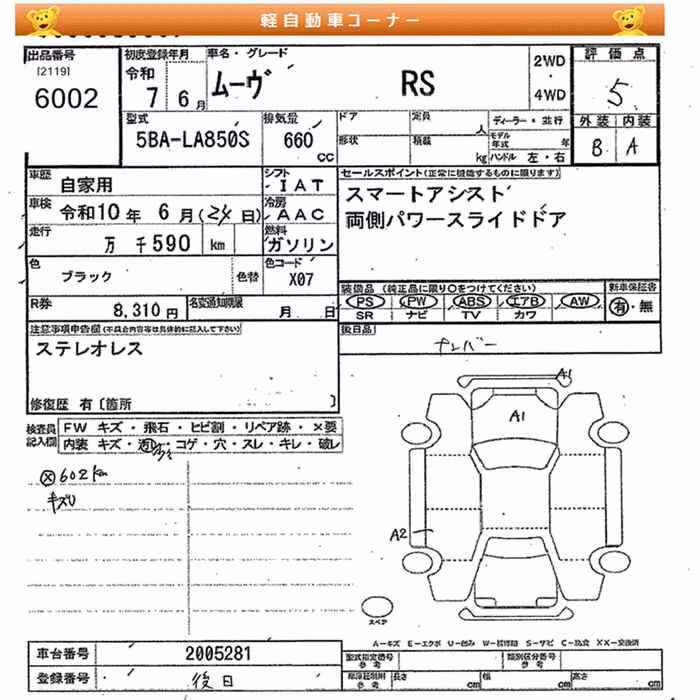 軽自動車コーナー
出品番号
[2119]
6002
初度登録年月
令和
7 6月
車名・グレード
ムーヴ RS
2WD
・
4WD
評価点
5
外装 内装
B A
型式
5BA-LA850S
排気量
660
CC
ドア
定員
人
形状
積載
kg
ディーラー・並行
モデル年式 年
ハンドル 左・右
車歴
自家用
シフト
IAT
車検
令和10年 6月(24日)
冷房
AAC
走行
万 千590 km
燃料
ガソリン
色
ブラック
色替
色コード
X07
R券
8,310円
名変通知期限
月 日
セールスポイント(正常に機能するものに限ります)
スマートアシスト
両側パワースライドドア
装備品 (純正品に限り○をつけてください)
PS PW ABS エアB AW
SR ナビ TV カワ
新車保証書
有・無
後日品
ナンバー
注意事項申告欄(不具合内容等は具体的に記入して下さい)
ステレオレス
修復歴 有〔箇所 〕
検査員記入欄
FW キズ・飛石・ヒビ割・リペア跡・×要
内装 キズ・汚レ・コゲ・穴・スレ・キレ・破レ
602km
キズU
A1
A1
A2
スペア
A-キズ E-エクボ U-凹み W-補修跡 S-サビ C-腐食 XX-交換済
車台番号
2005281
登録番号
後日
型式指定番号
参考
類別区分番号
参考
車庫証明用
参考
長さ cm
幅 cm
高さ cm